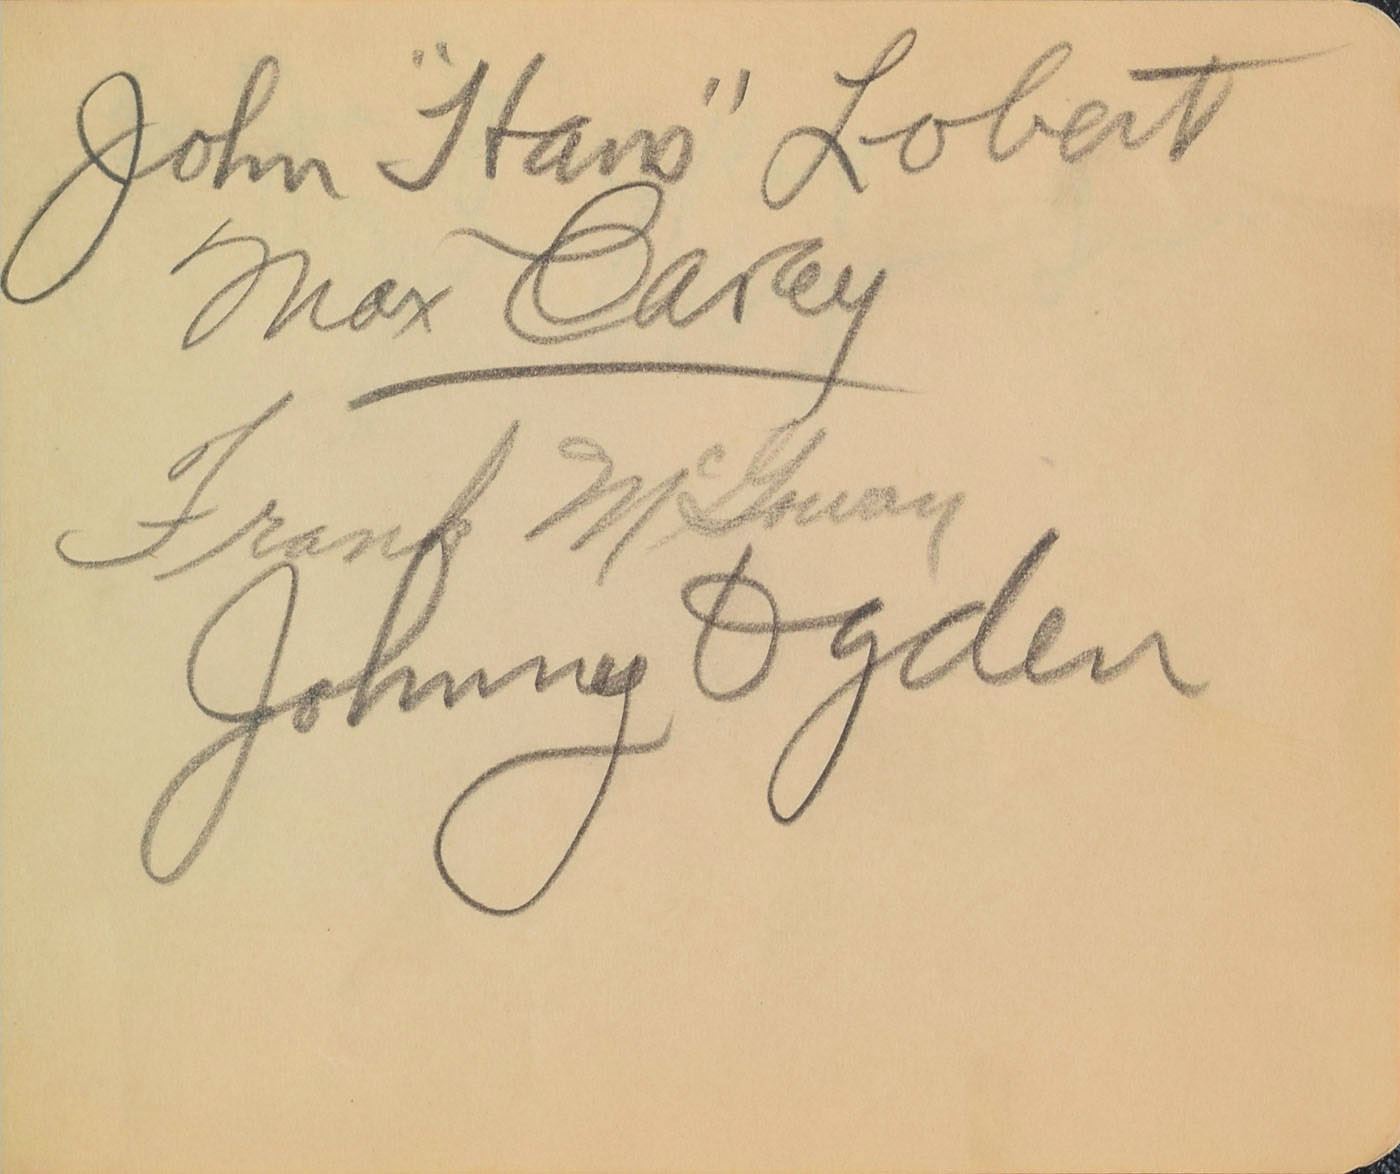 John "Hans" Lobert
Max Carey
Frank McGowan
Johnny Ogden